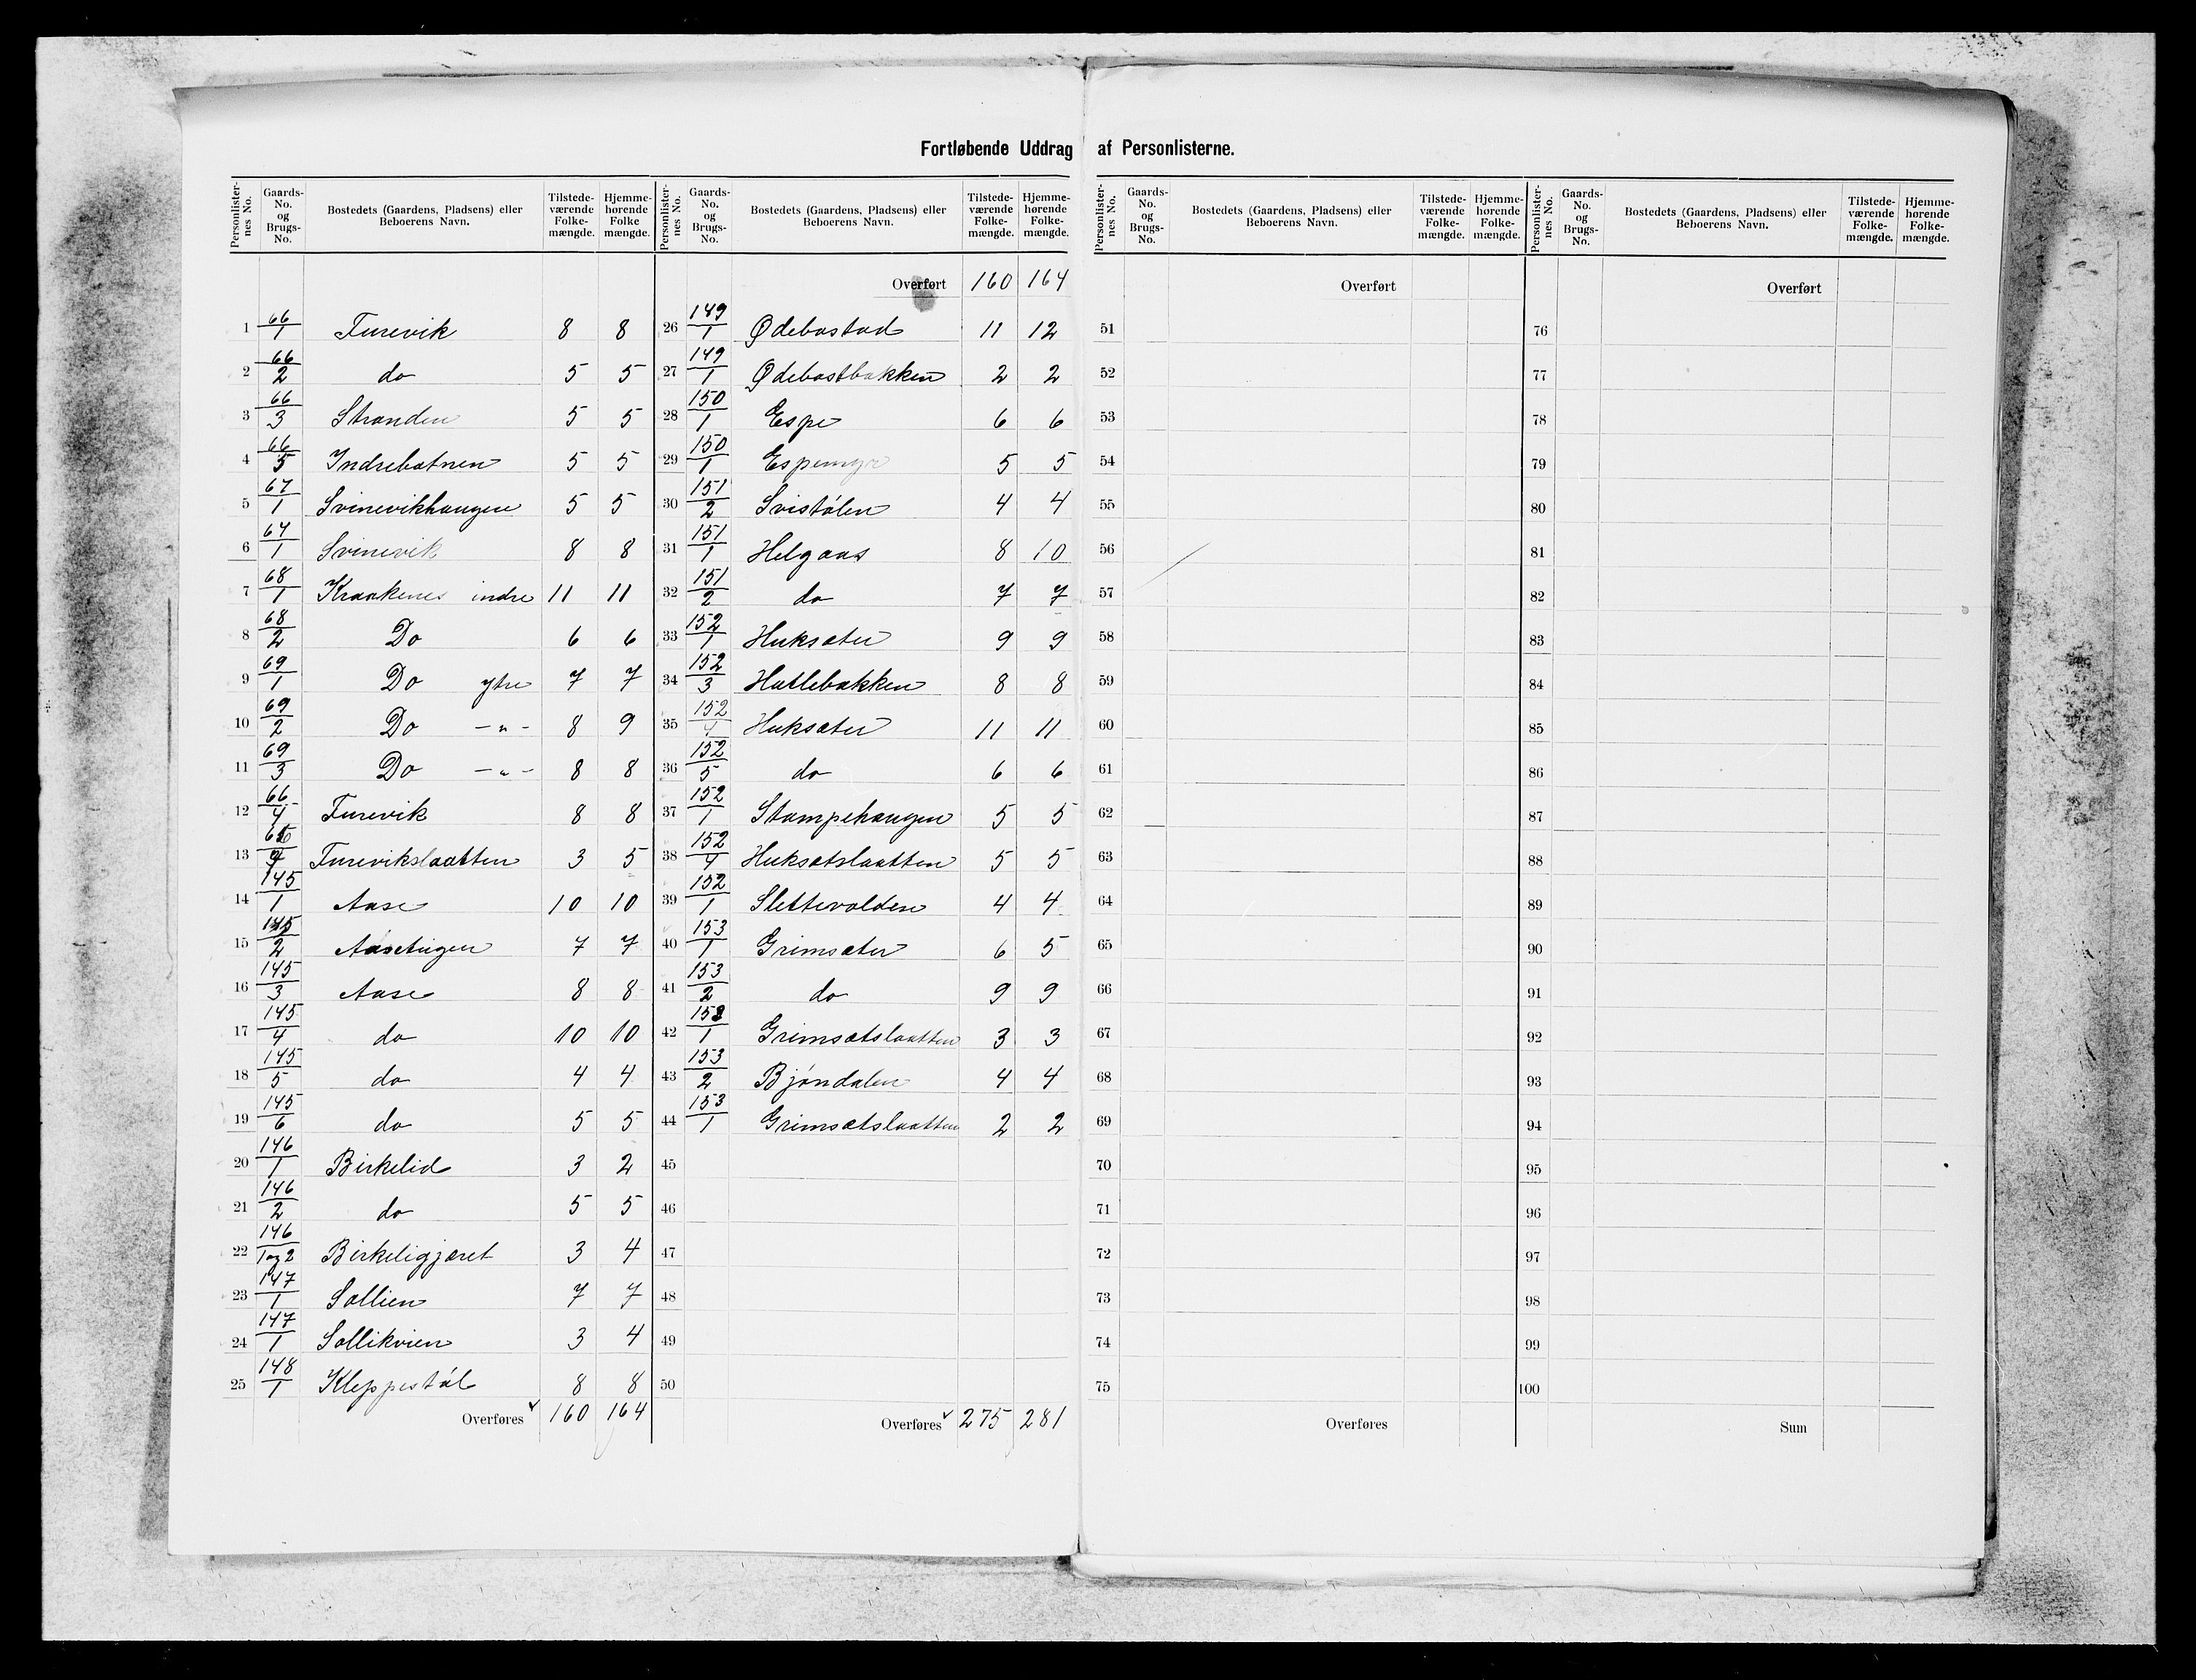 Fortløbende Uddrag af Personlisterne.
Personlister-nes No. Gaards-No. og Brugs-No. Bostedets (Gaardens, Pladsens) eller Beboerens Navn. Tilstede-værende Folke-mængde. Hjemme-hørende Folke mængde.
1 66/1 Furevik 8 8
2 66/2 do 5 5
3 66/3 Stranden 5 5
4 66/5 Indrebotnen 5 5
5 67/1 Svinevikhaugen 5 5
6 67/1 Svinevik 8 8
7 68/1 Kraakenes indre 11 11
8 68/2 Do 6 6
9 69/1 Do ytre 7 7
10 69/2 Do -"- 8 9
11 69/3 Do -"- 8 8
12 66/4 Furevik 8 8
13 Furevikslaatten 3 5
14 145/1 Aase 10 10
15 145/2 Aaseteigen 7 7
16 145/3 Aase 8 8
17 145/4 do 10 10
18 145/5 do 4 4
19 145/6 do 5 5
20 146/1 Birkelid 3 2
21 146/2 do 5 5
22 146/1og2 Birkeligjæret 3 4
23 147/1 Sollien 7 7
24 147/1 Sollikvien 3 4
25 148/1 Kleppestøl 8 8
Overføres 160 164
Personlister-nes No. Gaards-No. og Brugs-No. Bostedets (Gaardens, Pladsens) eller Beboerens Navn. Tilstede-værende Folke-mængde. Hjemme-hørende Folke-mængde.
Overført 160 164
26 149/1 Ødebostad 11 12
27 149/1 Ødebostbakken 2 2
28 150/1 Espe 6 6
29 150/1 Espemyr 5 5
30 151/2 Svistølen 4 4
31 151/1 Helgaas 8 10
32 151/2 do 7 7
33 152/1 Huksæter 9 9
34 152/3 Hatlebakken 8 8
35 152/4 Huksæter 11 11
36 152/5 do 6 6
37 152/1 Stampehaugen 5 5
38 152/4 Huksætslaatten 5 5
39 152/1 Slettevolden 4 4
40 153/1 Grimsæter 6 5
41 153/2 do 9 9
42 153/1 Grimsætslaatten 3 3
43 153/2 Bjøndalen 4 4
44 153/1 Grimsætslaatten 2 2
45
46
47
48
49
50
Overføres 275 281
Personlister-nes No. Gaards-No. og Brugs-No. Bostedets (Gaardens, Pladsens) eller Beboerens Navn. Tilstede-værende Folke-mængde. Hjemme-hørende Folke-mængde.
Overført
51
52
53
54
55
56
57
58
59
60
61
62
63
64
65
66
67
68
69
70
71
72
73
74
75
Overføres
Personlister-nes No. Gaards-No. og Brugs-No. Bostedets (Gaardens, Pladsens) eller Beboerens Navn. Tilstede-værende Folke-mængde. Hjemme-hørende Folke-mængde.
Overført
76
77
78
79
80
81
82
83
84
85
86
87
88
89
90
91
92
93
94
95
96
97
98
99
100
Sum